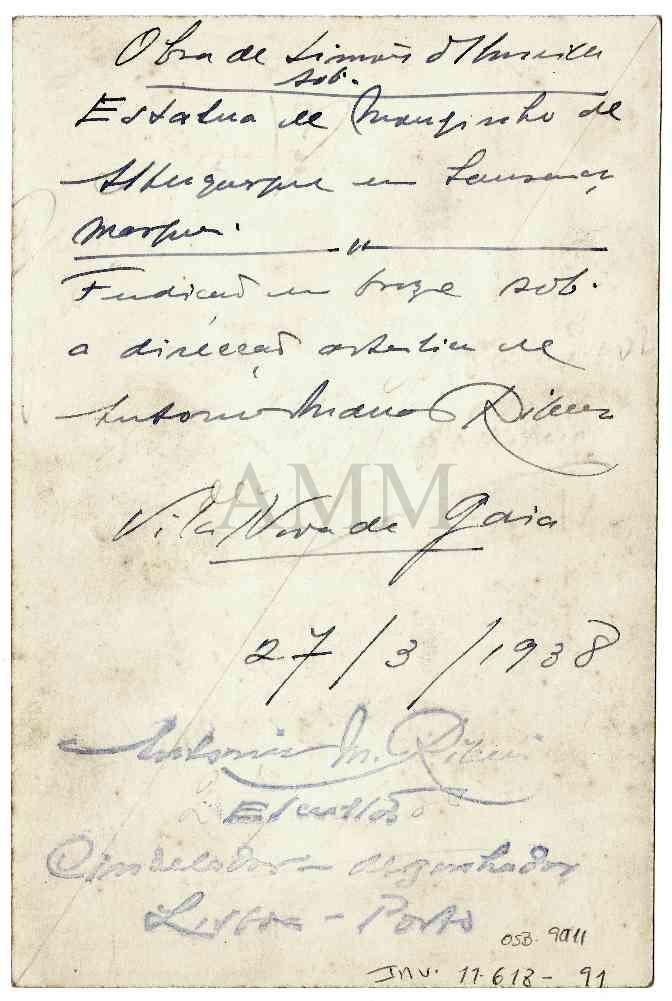 Obra de Simões d'Almeida
sob.
Estatua de Mousinho de
Albuquerque em Lourenço
Marques.
"
Fundição em bronze sob.
a direcção artistica de
Antonio Maria Ribeiro
AMM
Vila Nova de Gaia
27/3/1938
Antonio M. Ribeiro
Escultor
Cinzelador - desenhador
Lisboa - Porto
OSB. 9011
Inv. 11.618 - 91